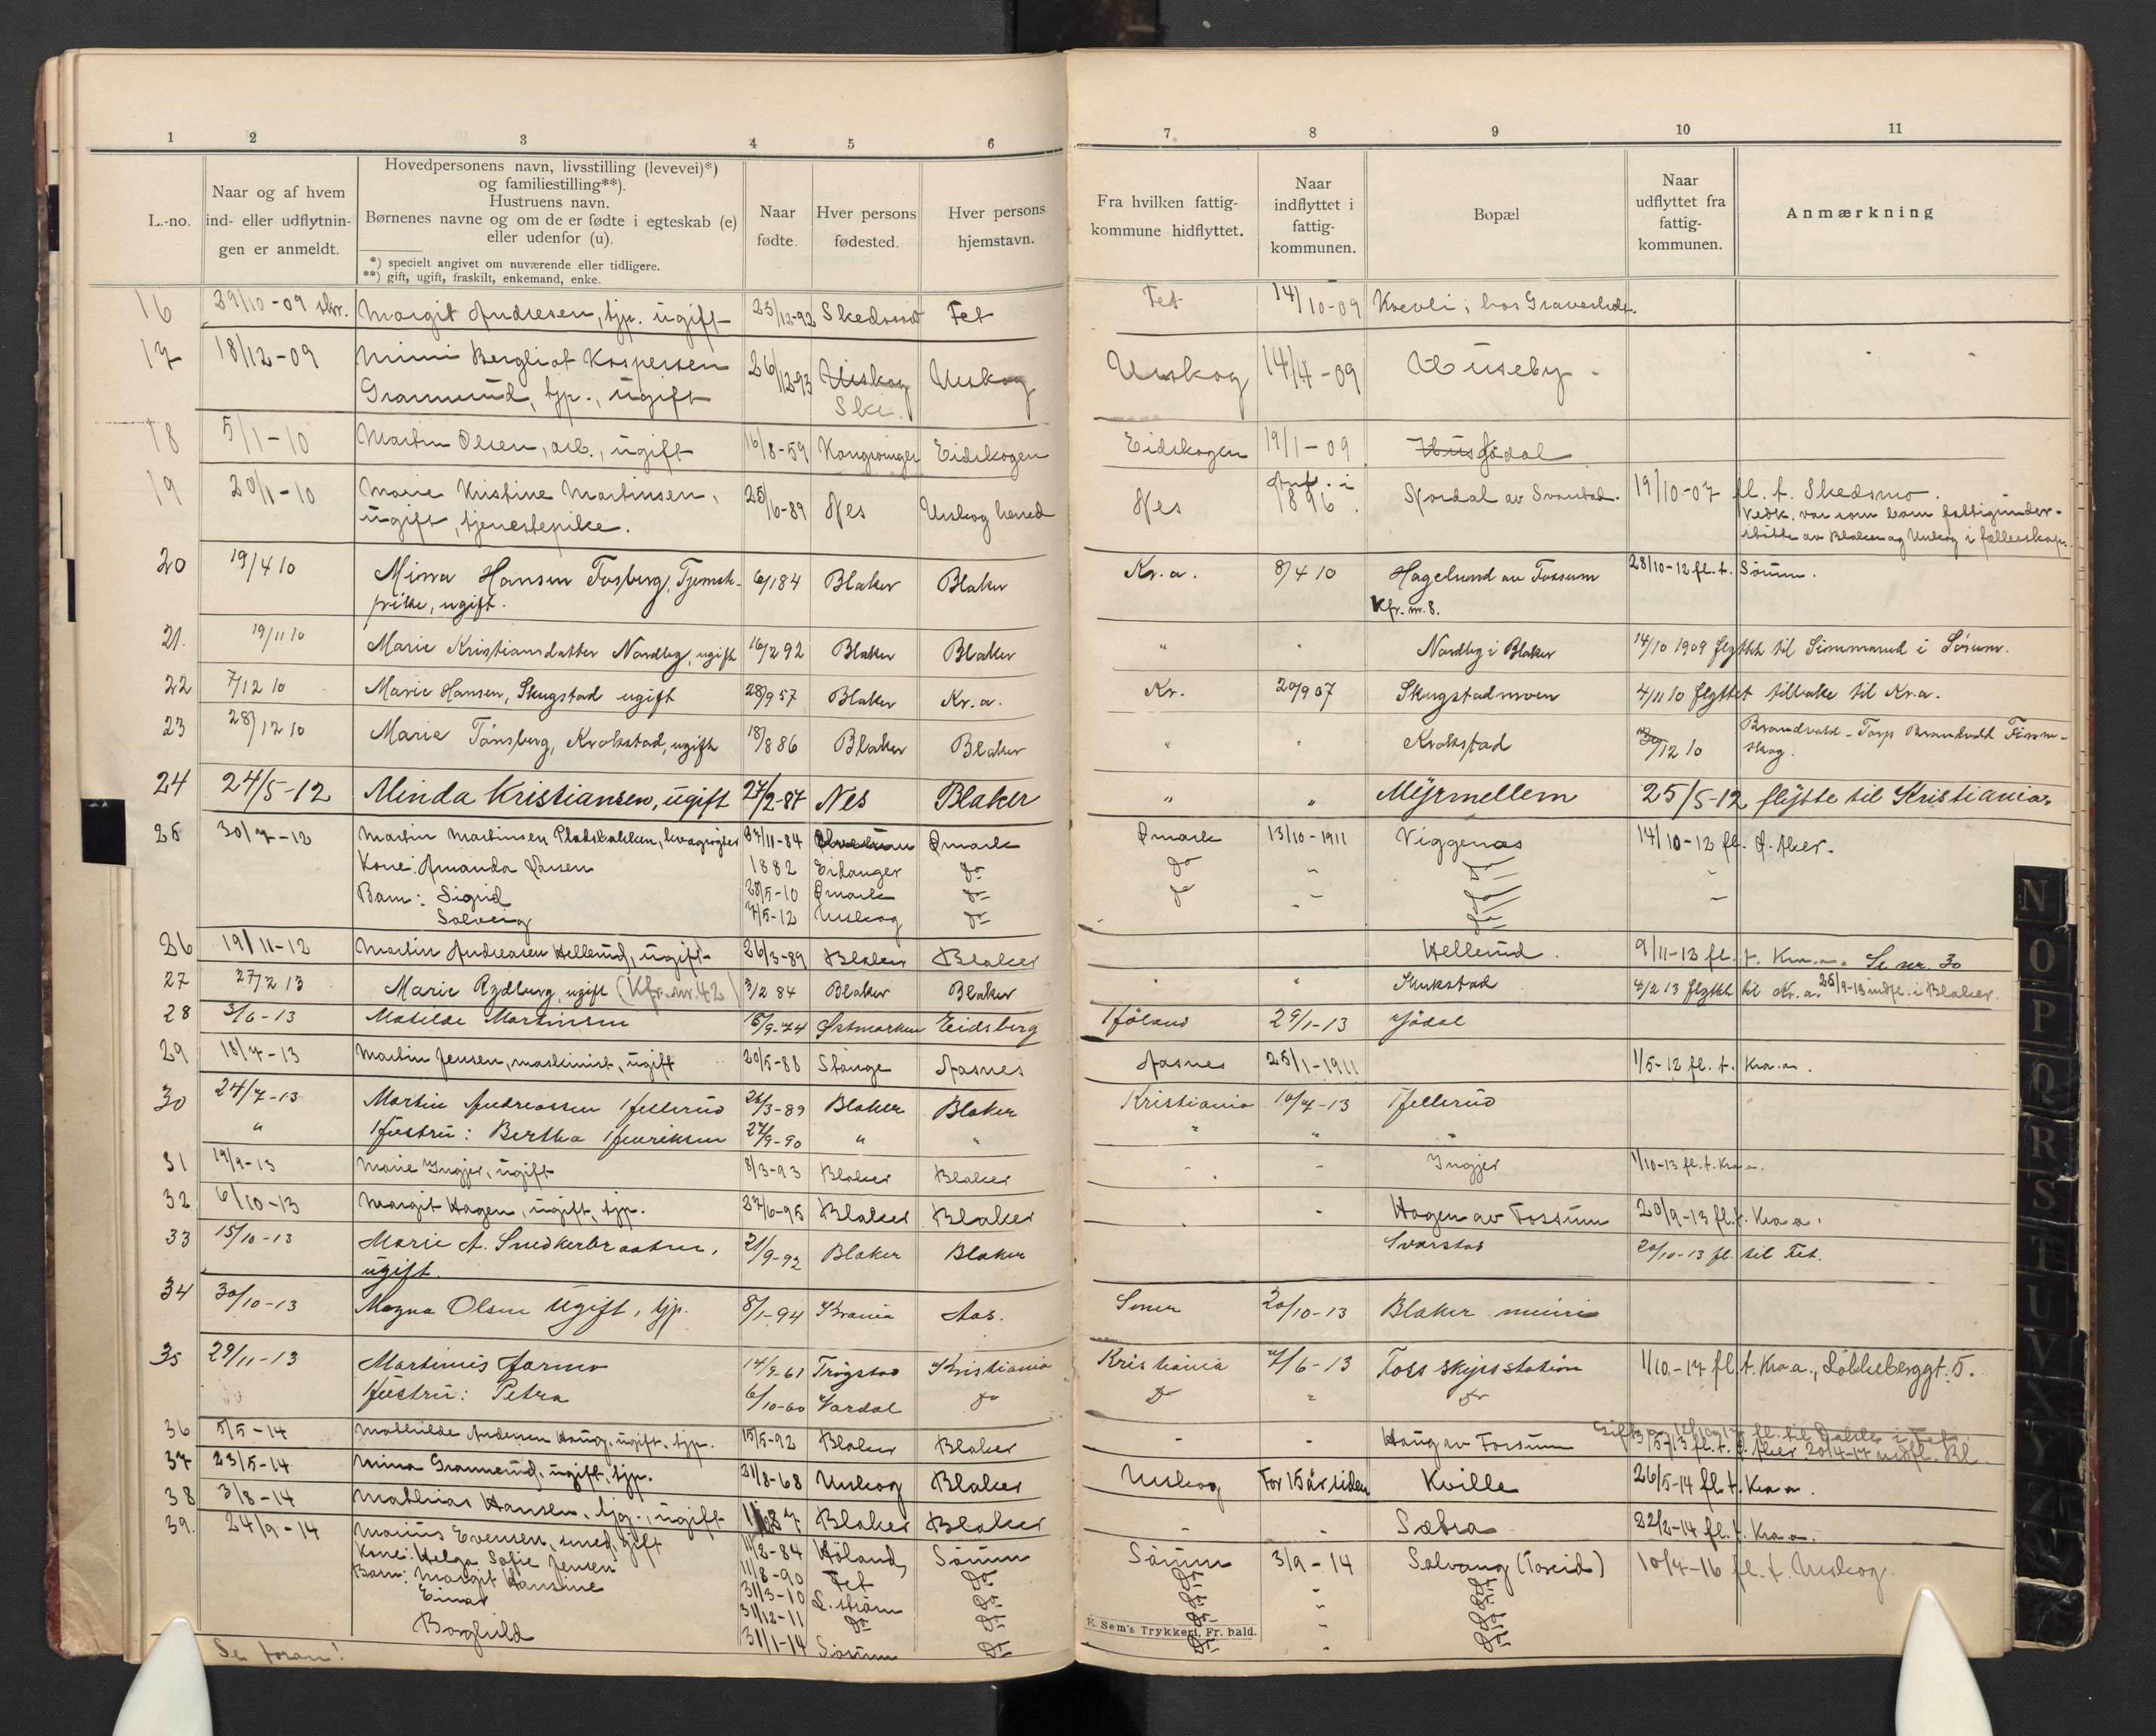 1 2 3 4 5 6 7 8 9 10 11
L.-no.
Naar og af hvem
ind- eller udflytnin-
gen er anmeldt.
Hovedpersonens navn, livsstilling (levevei)*)
og familiestilling**).
Hustruens navn.
Børnenes navne og om de er fødte i egteskab (e)
eller udenfor (u).
*) specielt angivet om nuværende eller tidligere.
**) gift, ugift, fraskilt, enkemand, enke.
Naar
fødte.
Hver persons
fødested.
Hver persons
hjemstavn.
Fra hvilken fattig-
kommune hidflyttet.
Naar
indflyttet i
fattig-
kommunen.
Bopæl
Naar
udflyttet fra
fattig-
kommunen.
Anmærkning
16 29/10-09 skr. Margit Andresen, tjp. ugift 23/12-92 Skedsmo Fet Fet 14/10-09 Kvevli, hos
17 18/12-09 Mimi Bergliot Kaspersen 26/12-93 Urskog Urskog Urskog 14/4-09 Huseby
Grannerud, tjp., ugift Ski.
18 5/1-10 Martin Olsen, arb., ugift 16/8-59 Kongsvinger Eidskogen Eidskogen 19/1-09 Hus Jødal
19 20/1-10 Marie Kristine Martinsen, 25/6-89 Nes Urskog herred Nes Ant. i 1896. Nordal av Svarstad. 19/10-07 fl. t. Skedsmo.
ugift, tjenestepike. Vedk. var som barn fattigunder-
støttet av Blaker og Urskog i fællesskap.
20 19/4 10 Minna Hansen Fosberg, Tjenest- 6/1 84 Blaker Blaker Kr.a. 8/4 10 Hagelund av Fossum 28/10-12 fl. t. Sørum.
pike, ugift. Kfr. nr. 8.
21. 19/11 10 Marie Kristiansdatter Nordby, ugift 16/2 92 Blaker Blaker " " Nordby i Blaker 14/10 1909 flyttet til Simmarud i Sørum.
22 7/12 10 Marie Hansen, Skugstad ugift 28/9 57 Blaker Kr.a. Kr. 20/9 07 Skugstadmoen 4/11 10 flyttet tilbake til Kr.a.
23 28/12 10 Marie Tønsberg, Krokstad, ugift 18/8 86 Blaker Blaker " " Krokstad 12 10 Brandvold - Torp Brandvold Finn-
skog.
24 24/5-12 Minda Kristiansen, ugift 27/2-87 Nes Blaker " " Myrmellem 25/5-12 flytte til Kristiania.
25 30/7-12 Martin Martinsen Pladsbakken, 27/11-84 Ømark Ømark 13/10-1911 Viggenæs 14/10-12 fl. Ø. Aker.
Kone: Amanda Larsen 1882 Eidanger Do Do - Do -
Barn: Sigrid 28/5-10 Ømark Do Do - Do -
Solveig 7/5-12 Urskog Do - Do
26 19/11-12 Martin Andreasen Hellerud, ugift 26/3-89 Blaker Blaker Hellerud. 9/11-12 fl. t. Kr.a. Se nr. 30
27 27/2 13 Marie Rydberg, ugift (Kfr. nr. 42) 3/2 84 Blaker Blaker Skukstad 4/2 13 flyttet til Kr.a. 25/9-13 indfl. i Blaker.
28 3/6-13 Matilde Martinsen 15/9-74 Østmarken Eidsberg Høland 29/1-13 Jødal
29 18/7-13 Martin Jensen, maskinist, ugift 20/5-88 Stange Aasnes Aasnes 25/1-1911 1/5-12 fl. t. Kra.a.
30 24/7-13 Martin Andreassen Hellerud 26/3-89 Blaker Blaker Kristiania 10/7-13 Hellerud
" Hustru: Bertha Henriksen 27/9-90 " " " " "
31 19/9-13 Marie Ingjer, ugift 8/3-93 Blaker Blaker - - Ingjer 1/10-13 fl. t. Kra.a.
32 6/10-13 Margit Hagen, ugift, tjp. 27/6-95 Blaker Blaker - Hagen av Fossum 20/9-13 fl. t. Kra.a.
33 15/10-13 Marie A. Snedkerbraaten, 21/9-92 Blaker Blaker Svarstad 20/10-13 fl. til Fet.
ugift.
34 30/10-13 Magna Olsen ugift, tjp. 8/1-94 Krania Aas. 20/10-13 Blaker meieri
35 29/11-13 Martinius Jarmo 14/9-61 Trøgstad Kristiania Kristiania 7/6-13 Foss skysstation 1/10-17 fl. t. Kra.a., Løkkeberggt. 5.
Do Hustru: Petra 6/10-60 Vardal Do Do " Do
36 5/5-14 Mathilde Andersen Haug, ugift, tjp. 15/5-92 Blaker Blaker - - Haug av Fossum fl. t. Ø. Aker 20/4-17 indfl. Bl.
37 23/5-14 Mina Grannerud, ugift, tjp. 21/8-68 Urskog Blaker Urskog For 15 år siden Kville 26/5-14 fl. t. Kra.a.
38 3/8-14 Mathias Hansen, tjg., ugift Blaker Blaker - - Sæbra 22/2-14 fl. t. Kra.a.
39. 24/9-14 Marius Evensen, smed, gift 11/2-84 Høland, Sørum Sørum 3/9-14 Solvang (Toreid) 10/4-16 fl. t. Urskog.
Kone: Helga Sofie Jensen 11/8-90 Fet Do Do " Do
Barn: Margit Hansine 31/3-10 L. strøm Do Do " Do
Einar 31/12-11 Do Do Do " Do
Borghild 31/1-14 Sørum Do Do " Do
E. Sem's Trykkeri, Fr. hald.
Se foran!
N
O
P
Q
R
S
T
U
V
X
Y
Z